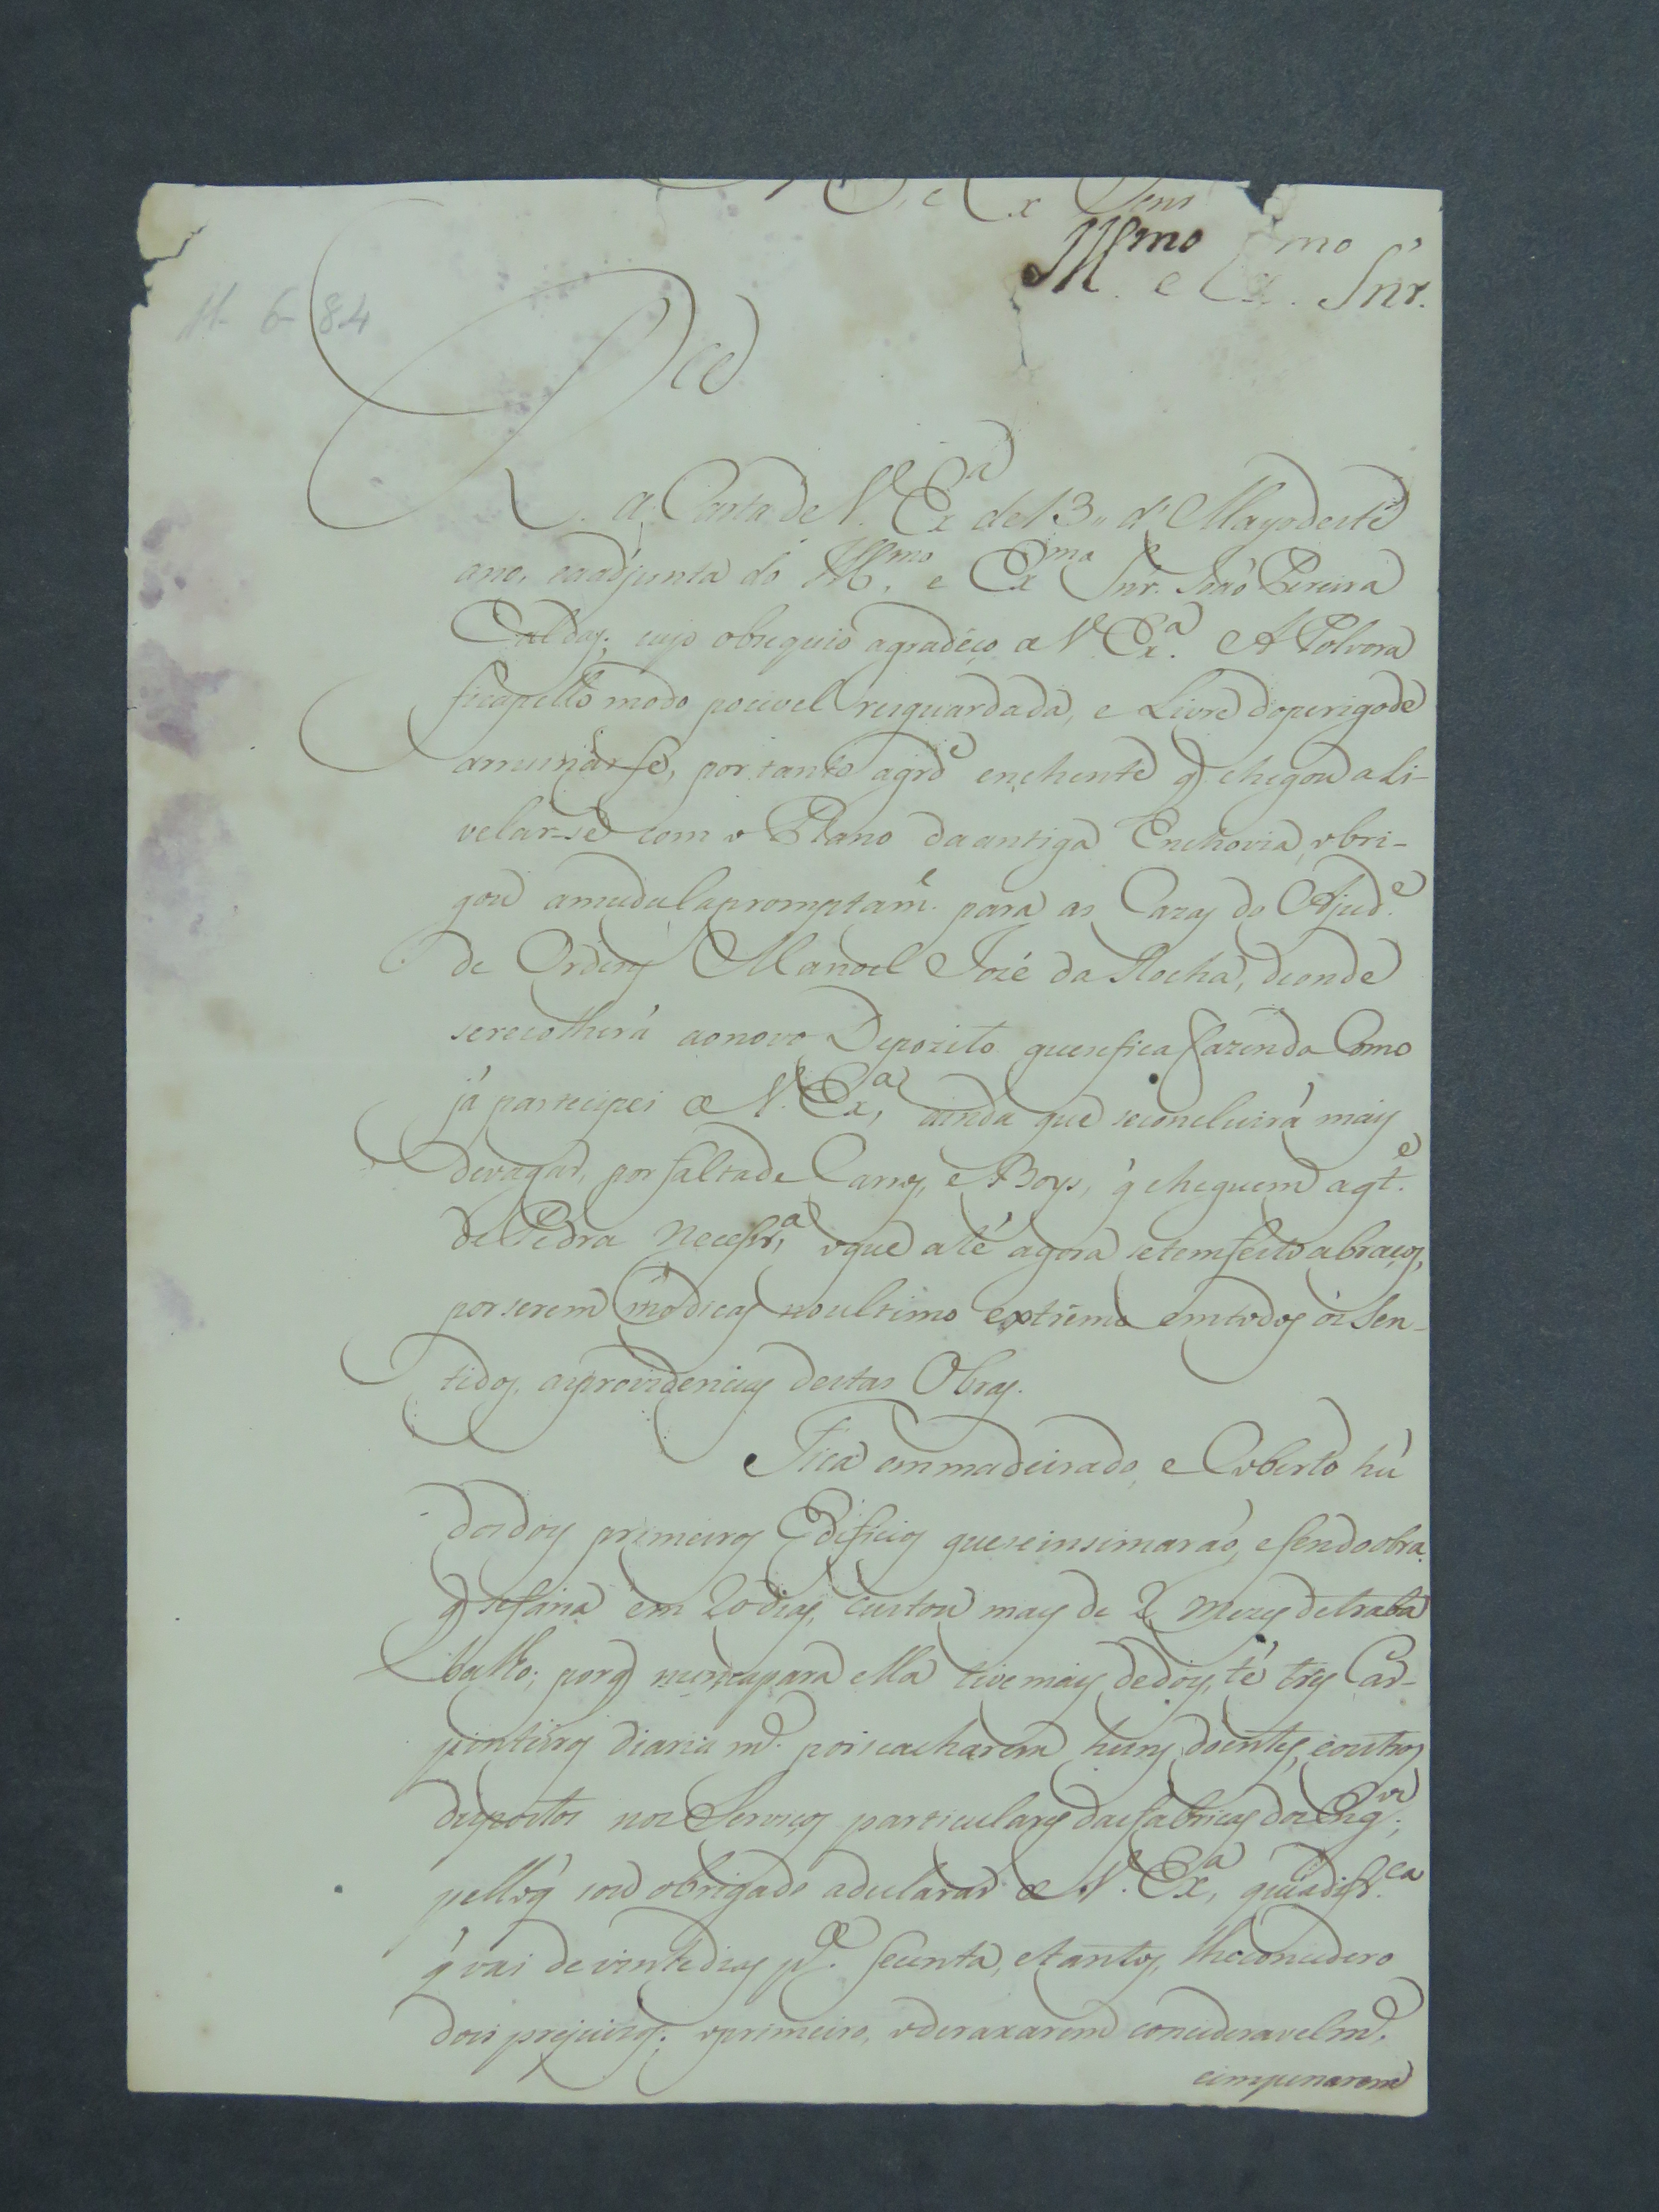 Ill.mo e Ex.mo Snr.
11-6-84
Rce
a Carta de V. Ex.a de 13,, d'Mayo deste
ano, eaadjunta do Ill.mo e Ex.mo Snr. João Pereira
Caldas; cujo obzequio agradeço a V. Ex.a A Polvora
fica pello modo pocivel resguardada, e Livre do perigo de
arruinarse, por tanto agrd.e enchente q chegou a Li-
velar-se com o Plano da antiga Enchovia, obri-
gou amudala promptam.e para as Cazas do Ajud.e
de Ordens Manoel Jozé da Rocha, deonde
serecolherá aonovo Depozito quesefica fazendo Como
já partecipei a V. Ex.a, ainda que seconcluirá mais
devagar, por faltade Carros, e Boys, q' cheguem agt.e
de Pedra necessr.a, oque até agora setemfeito abraços,
por serem módicas noultimo extremo emtodos os Sen-
tidos, asprovidencias destas Obras.
Fica emmadeirado, e Coberto hú
dosdois primeiros Edificios queseinsimarão, esendo obra
q sefaria em 20 dias, custou mais de 2 mezes detraba
balho; porq nuncapara ella tive mais dedois, té tres Car-
pinteiros diariam.e poiseacharem huns doentes, eoutros
dispostos nos Serviços particulares dasfabricas dos Eng.os;
pelloq' sou obrigado adeclarar a V. Ex.a, que adifr.ca
q' vai de vinte dias p.a secenta, etantos, lheconcidero
dois prejuizos; oprimeiro, oderaxarem concideravelm.e,
eimpenarem